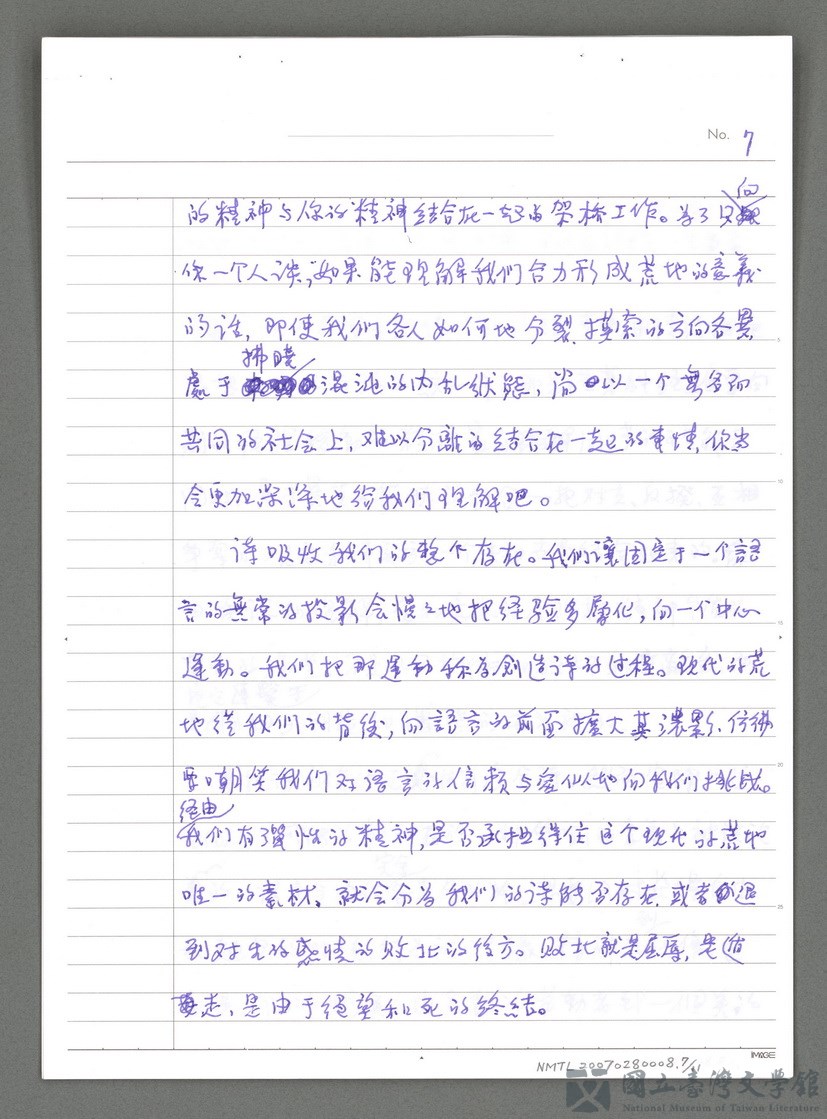 No. 7
向
的精神与你的精神结合在一起的架桥工作。为了只
你一个人谈,如果能理解我们合力形成荒地的意義
的话,即使我们各人如何地分裂,摸索的方向各異
拂曉
處于混沌的内乱狀態,尚以一个無名而
共同的社会上,难以分離的结合在一起的事情,你当
会更加深深地给我们理解吧。
请吸收我们的整个存在。我们讓固定于一个語
言的無常的投影会慢々地把经验多層化,向一个中心
運動。我们把那運動称为創造诗的过程。现代的荒
地從我们的背後,向語言的前面擴大其濃影,彷彿
要嘲笑我们对語言的信頼与愛似地向我们挑战。
经由
我们有彈性的精神,是否承担得住这个现代的荒地
唯一的素材,就会分為我们的诗能否存在,或者退
到对生的感情的敗北的後方。敗北就是屈辱,是
走,是由于绝望和死的终结。
IMAGE
NMTL20070280008.7/
國立臺灣文學館
National Museum of Taiwan Literature